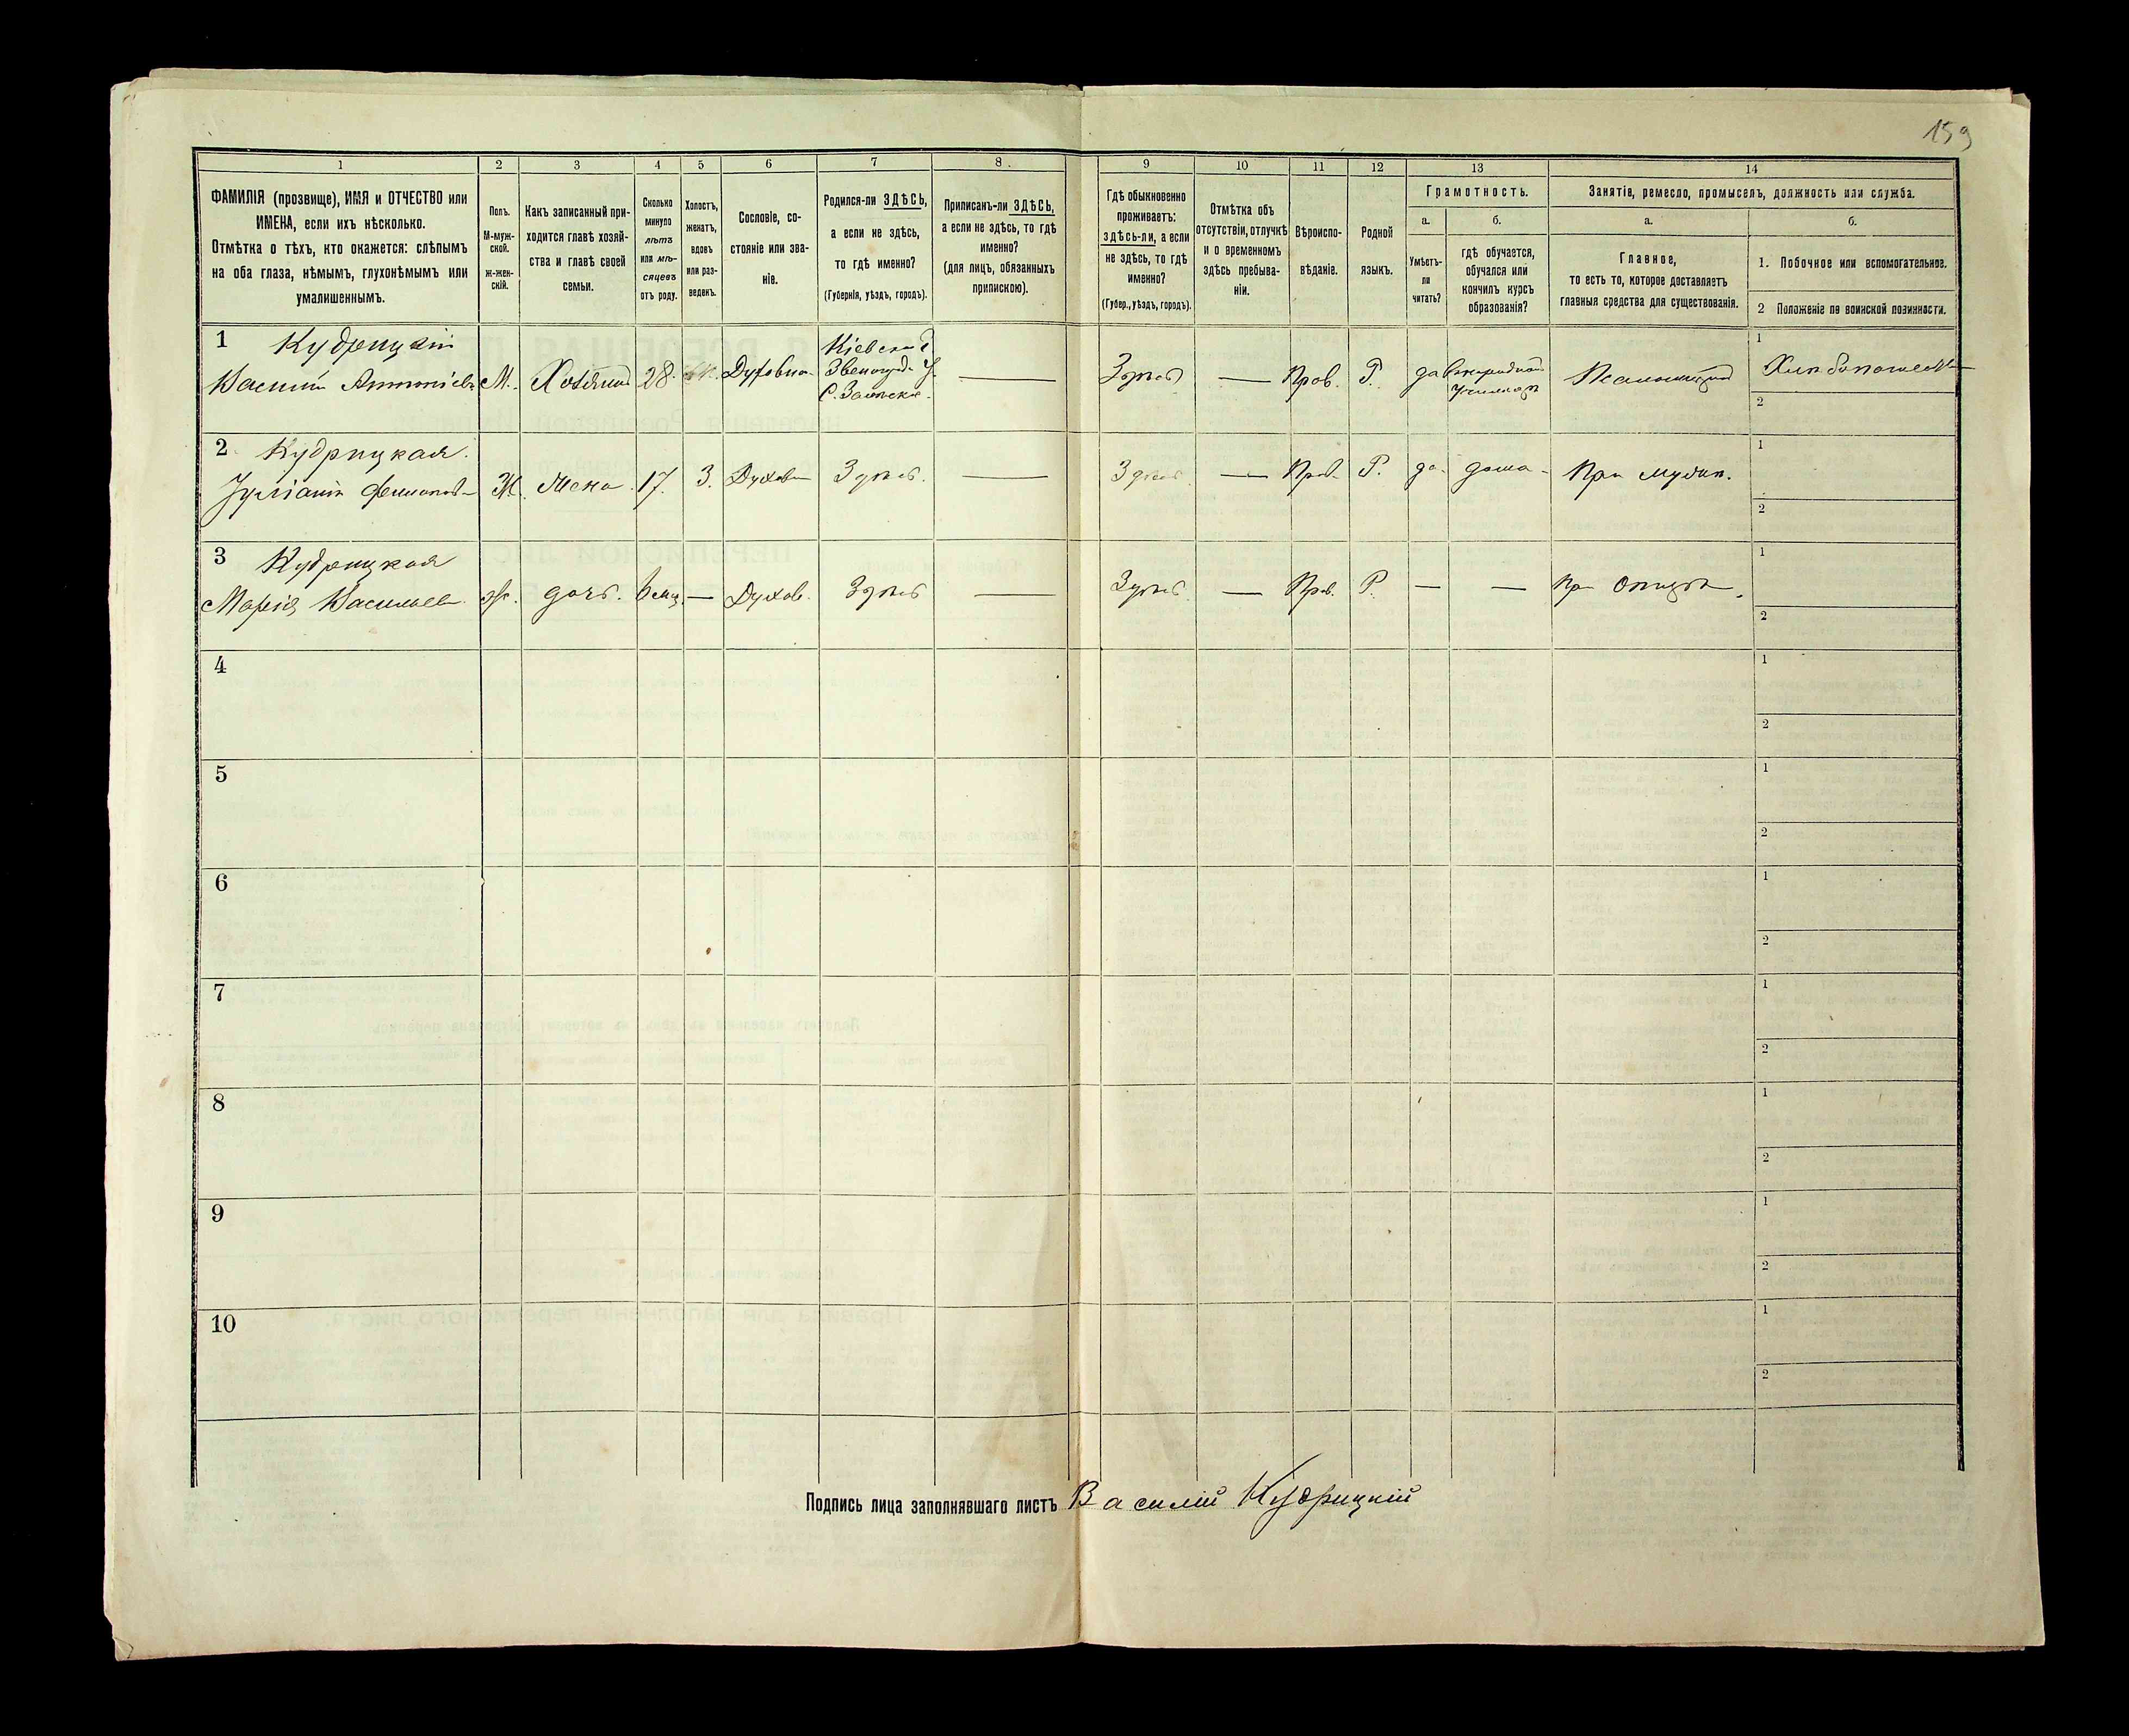 159
1 2 3 4 5 6 7 8. 9 10 11 12 13 14
ФАМИЛІЯ (прозвище), ИМЯ и ОТЧЕСТВО или
ИМЕНА, если ихъ нѣсколько.
Отмѣтка о тѣхъ, кто окажется: слѣпымъ
на оба глаза, нѣмымъ, глухонѣмымъ или
умалишеннымъ.
Полъ.
М-муж-
ской.
Ж-жен-
скій.
Какъ записанный при-
ходится главѣ хозяй-
ства и главѣ своей
семьи.
Сколько
минуло
лѣтъ
или мѣ-
сяцевъ
отъ роду.
Холостъ,
женатъ,
вдовъ
или раз-
веденъ.
Сословіе, со-
стояніе или зва-
ніе.
Родился-ли ЗДѢСЬ,
а если не здѣсь,
то гдѣ именно?
(Губернія, уѣздъ, городъ).
Приписанъ-ли ЗДѢСЬ,
а если не здѣсь, то гдѣ
именно?
(для лицъ, обязанныхъ
припискою).
Гдѣ обыкновенно
проживаетъ:
здѣсь-ли, а если
не здѣсь, то гдѣ
именно?
(Губер., уѣздъ, городъ).
Отмѣтка объ
отсутствіи, отлучкѣ
и о временномъ
здѣсь пребыва-
ніи.
Вѣроиспо-
вѣданіе.
Родной
языкъ.
Грамотность.
а.
Умѣетъ-
ли
читать?
б.
гдѣ обучается,
обучался или
кончилъ курсъ
образованія?
Занятіе, ремесло, промыселъ, должность или служба.
а.
Главное,
то есть то, которое доставляетъ
главныя средства для существованія.
б.
1. Побочное или вспомогательное.
2 Положеніе по воинской повинности.
1 Кудрицкій
Василій Антоніев
М. Хозяинъ 28. Духовно
Кіевской Г
Звенигород. У.
С.
— Здѣсь — Прав. Р. да
Псаломщикъ
1 Хлѣбопашество
2
2 Кудрицкая.
Іуліанія Филипов
Ж. Жена 17. З. Духов Здѣсь. — Здѣсь — Прав. Р. да дома При мужѣ.
1
2
3 Кудрицкая
Марія Васильев
Ж. дочь. 6 мц. — Духов. Здѣсь — Здѣсь — Прав. Р. — — При отцѣ.
1
2
4
1
2
5
1
2
6
1
2
7
1
2
8
1
2
9
1
2
10
1
2
Подпись лица заполнявшаго листъ Василій Кудрицкій